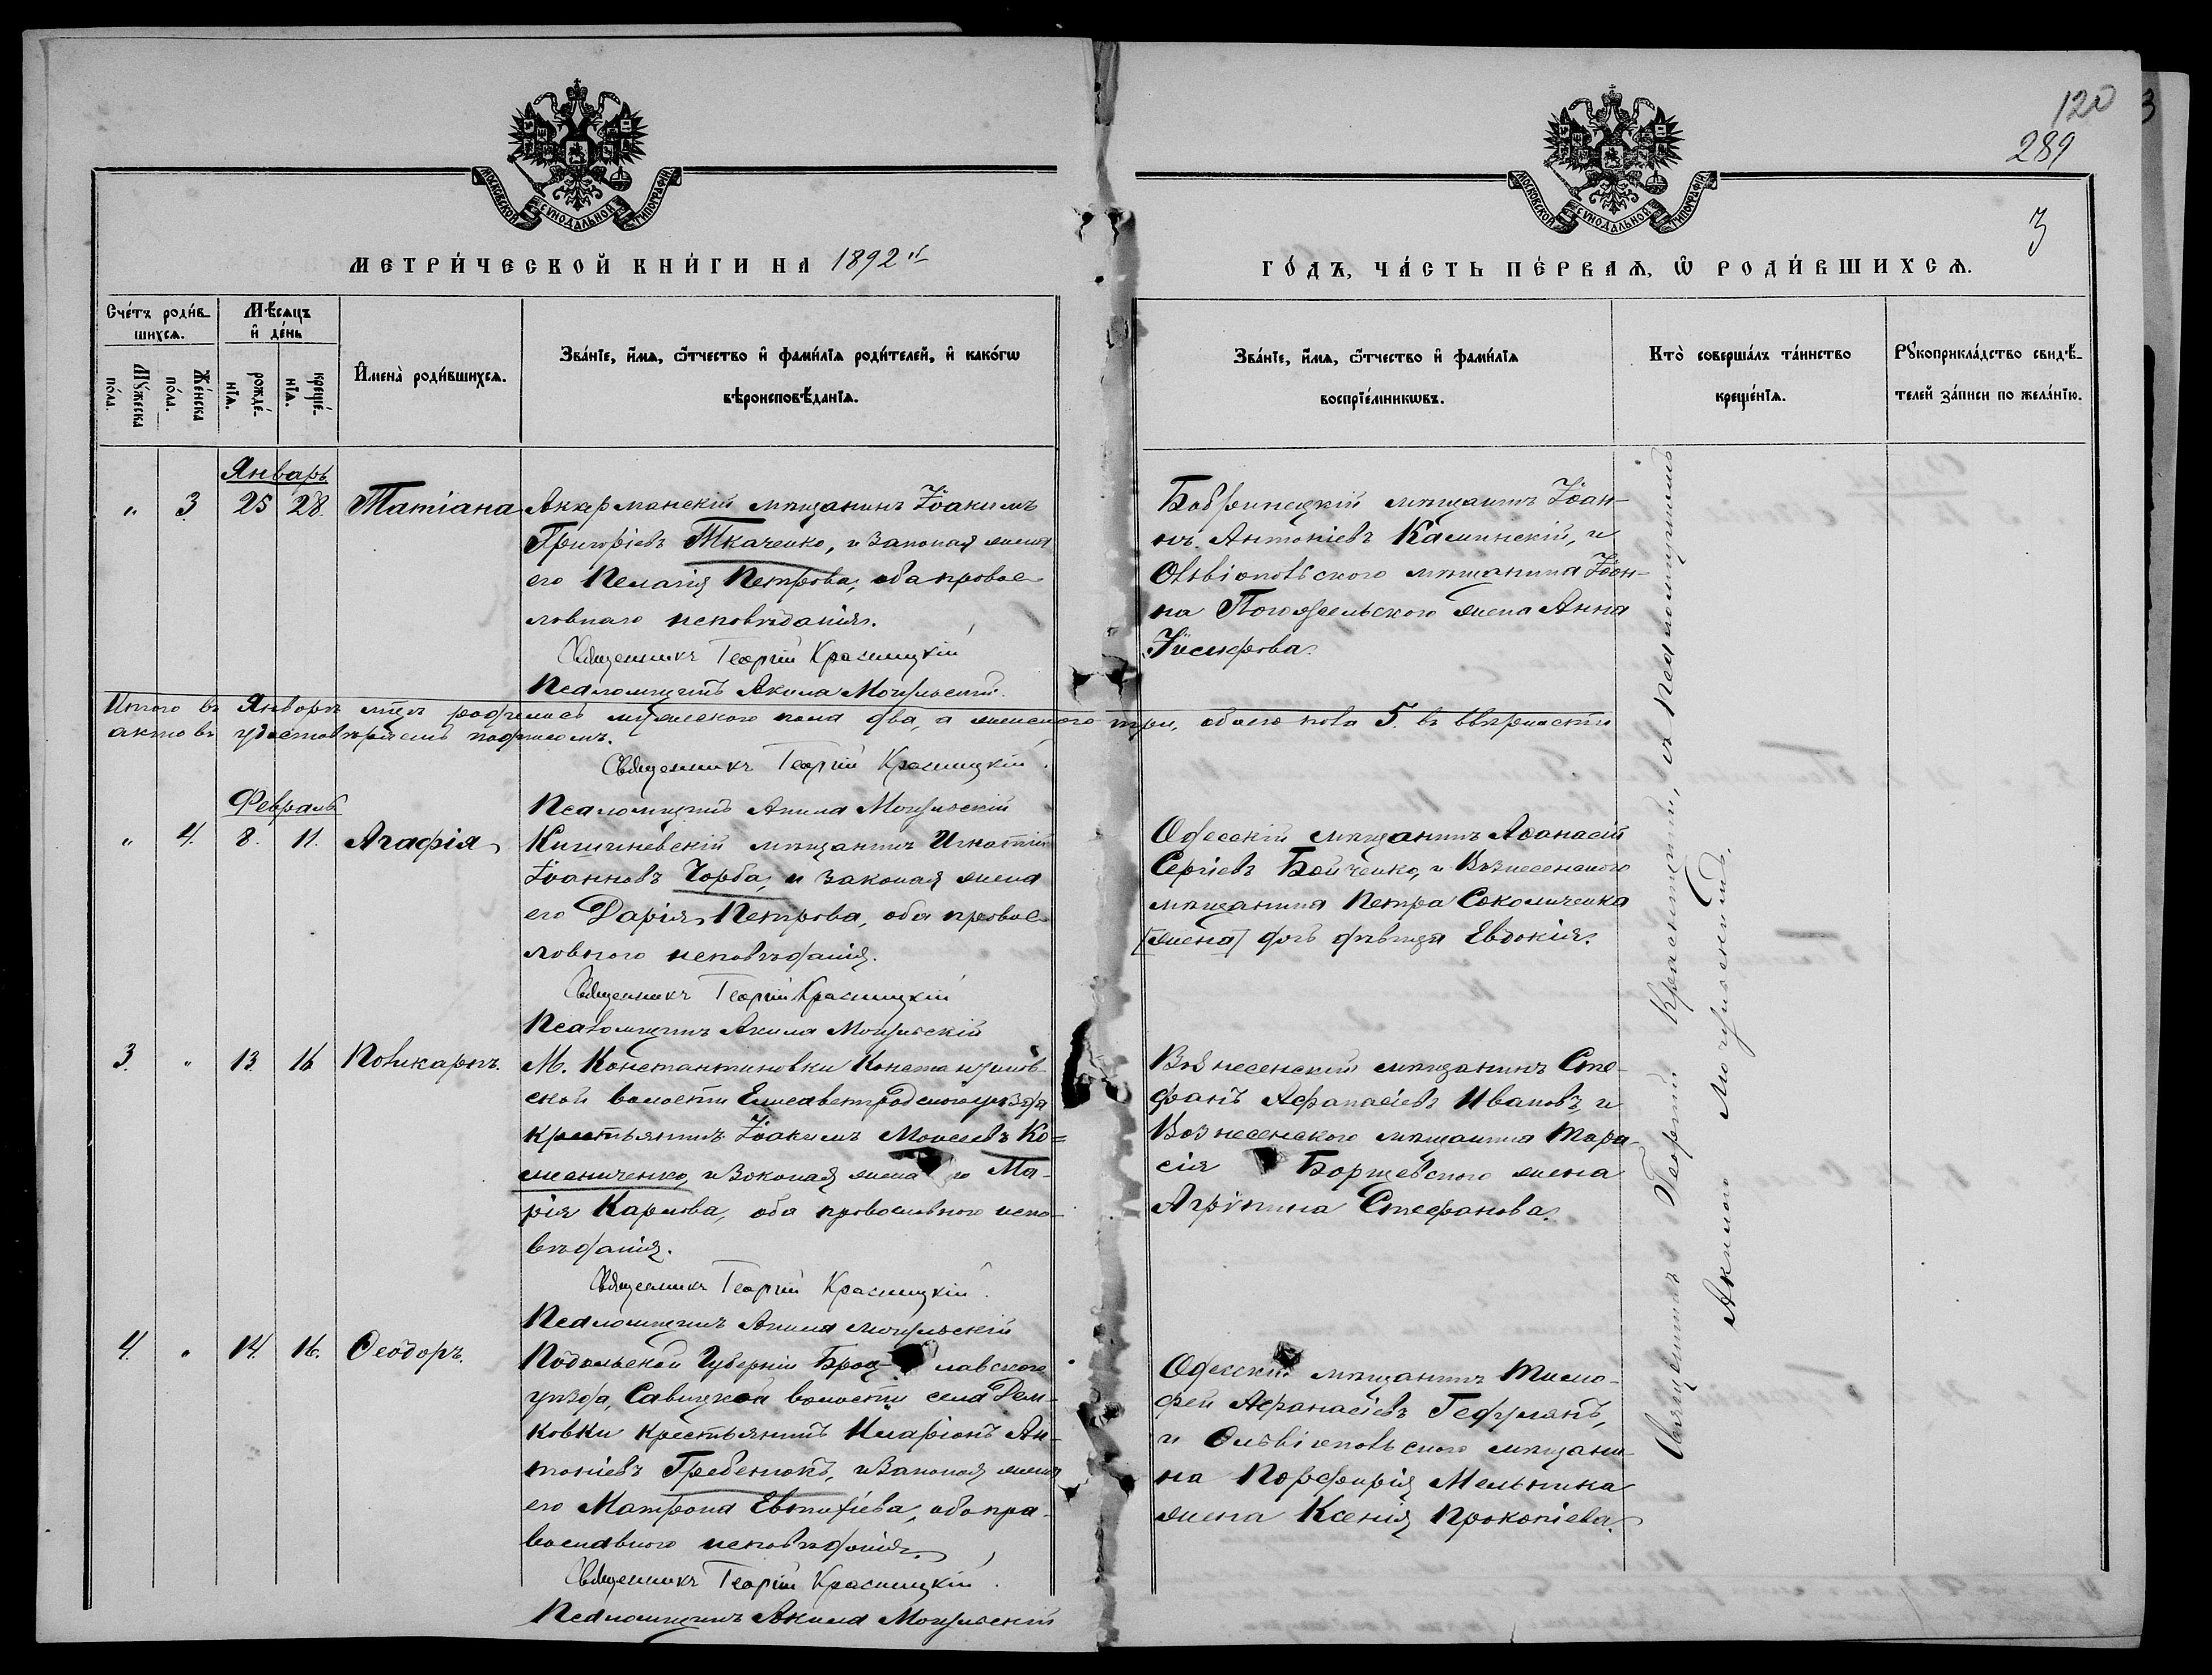 120
289
3
МОСКОВСКОЙ СѴНОДАЛЬНОЙ ТИПОГРАФІИ
МОСКОВСКОЙ СѴНОДАЛЬНОЙ ТИПОГРАФІИ
МЕТРИ́ЧЕСКОЙ КНИ́ГИ НА 1892й
ГО́ДЪ, ЧА́СТЬ ПЕ́РВАѦ, Ѡ РОДИ́ВШИХСѦ.
Сче́тъ роди́в-
шихсѧ.
Мѣ́сѧцъ
и де́нь
Мꙋ́жеска
по́ла.
Же́нска
по́ла.
рожде́-
нїѧ.
креще́-
нїѧ.
Имена̀ роди́вшихсѧ.
Зва́нїе, и́мѧ, ѻ҆́тчество и фами́лїѧ роди́телей, и како́гѡ
вѣроисповѣ́данїѧ.
Зва́нїе, и́мѧ, ѻ҆́тчество и фами́лїѧ
воспрїе́мникѡвъ.
Кто̀ соверша́лъ та́инство
креще́нїѧ.
Рꙋкоприкла́дство свидѣ́-
телей за́писи по жела́нїю.
Январь
" 3. 25 28. Татіана
Аккарманскій мѣщанинъ Іоакимъ
Григоріевъ Ткаченко, и законая жена
его Пелагія Петрова, оба правос-
лавнаго исповѣданія.
Священникъ Георгій Красницкій
Псаломщикъ Акила Могульскій
Бобринецкій мѣщанинъ Іоан-
нъ Антоніевъ Каминскій, и
Ольвіопольского мѣщанина Іоан-
на жена Анна
Итого въ Январѣ мцѣ родилось мужеского пола два, а женского три, обоего пола 5. въ вѣрности
актовъ удостовѣряемъ подписомъ.
Священникъ Георгій Красницкій.
Псаломщикъ Акила Могульскій
Февраль
" 4. 8. 11. Агафія
Кишиневскій мѣщанинъ Игнатій
Іоанновъ Чорба, и законая жена
его Дарія Петрова, оба правос-
лавного исповѣданія.
Священникъ Георгій Красницкій
Псаломщикъ Акила Могульскій
Одесскій мѣщанинъ Аѳанасій
Сергіевъ Бойченко, и Вознесенского
мѣщанина Петра Соколиченка
[жена] дочь дѣвица Евдокія.
3. " 13. 16 Поликарпъ.
М. Константиновки Константинов-
ской волости Елисаветградского уѣзда
крестьянинъ Іоакимъ Моисеевъ Ко-
и законая жена его Ма-
рія Карпова, оба православного испо-
вѣданія.
Священникъ Георгій Красницкій.
Псаломщикъ Акила Могульскій
Вознесенскій мѣщанинъ Сте-
фанъ Афанасіевъ Ивановъ, и
Вознесенского мѣщанина Тара-
сія Борщевского жена
Агріпина Стефанова.
4. " 14. 16. Ѳеодоръ.
Подольской Губерніи Брац-лавского
уѣзда, Савицкой волости села Дем-
ковки крестьянинъ Иларіонъ Ан-
тоніевъ Гребенюкъ, и законая жена
его Матрона Евтихіева, оба пра-
вославного исповѣданія.
Священникъ Георгій Красницкій.
Псаломщикъ Акила Могульскій
Одесскій мѣщанинъ Тимо-
фей Афанасіевъ
и Ольвіопольского мѣщани-
на Порфирія Мельника
жена Ксенія Прокопіева.
Священникъ Георгій Красницкій, съ псаломщикомъ
Акилою Могульскимъ.